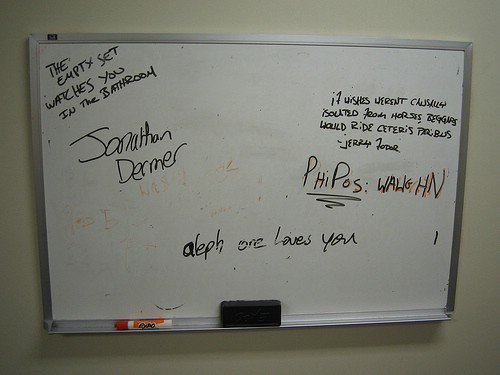 THE
EMPTY SET
WATCHES YOU
IN THE BATHROOM
if WISHES WERENT CAUSALLY
ISOLATED FROM HORSES BEGGARS
WOULD RIDE CETERIS PARIBUS
-JERRY FODOR
Jonathan
Dermer
PHIPOS: WAUGHN
aleph one Loves you
EXPO